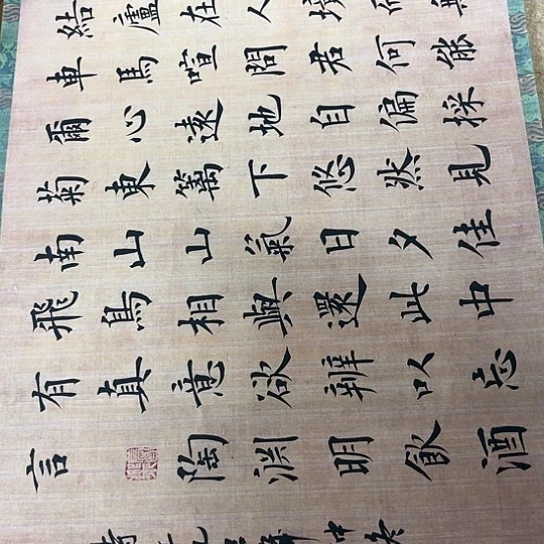 結廬在人境而無
車馬喧問君何能
爾心遠地自偏採
菊東篱下悠然見
南山山氣日夕佳
飛鳥相與還此中
有真意欲辨以忘
言 陶淵明飲酒